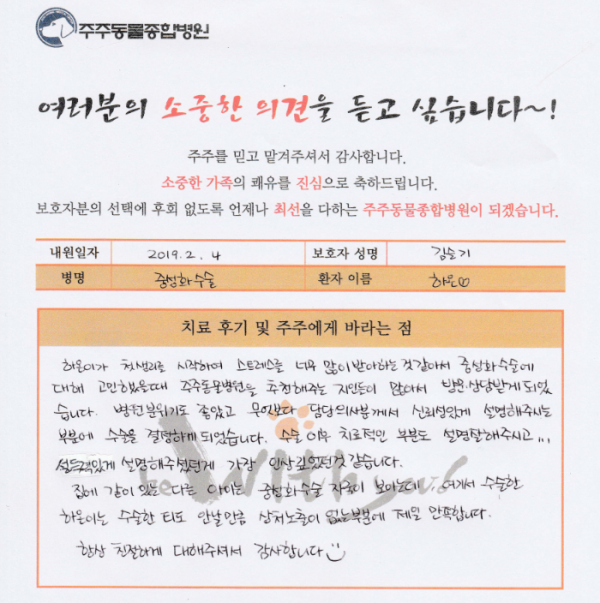 주주동물종합병원
여러분의 소중한 의견을 듣고 싶습니다~!
주주를 믿고 맡겨주셔서 감사합니다.
소중한 가족의 쾌유를 진심으로 축하드립니다.
보호자분의 선택에 후회 없도록 언제나 최선을 다하는 주주동물종합병원이 되겠습니다.
내원일자 2019. 2. 4 보호자 성명 김슬기
병명 중성화수술 환자 이름 하온♡
치료 후기 및 주주에게 바라는 점
하온이가 첫생리를 시작하여 스트레스를 너무 많이받아하는것같아서 중성화수술에
대해 고민했을때 주주동물병원을 추천해주는 지인들이 많아서 방문상담받게 되었
습니다. 병원분위기도 좋았고 무엇보다 담당의사분께서 신뢰성있게 설명해주시는
부분에 수술을 결정하게 되었습니다. 수술 이후 치료적인 부분도 설명잘해주시고...
설득력있게 설명해주셨던게 가장 인상깊었던것 같습니다.
집에 같이 있는 다른 아이는 중성화수술 자국이 보이는데 여기서 수술한
하온이는 수술한 티도 안날만큼 상처노출이 없는부분에 제일 만족합니다.
항상 친절하게 대해주셔서 감사합니다
be With you!